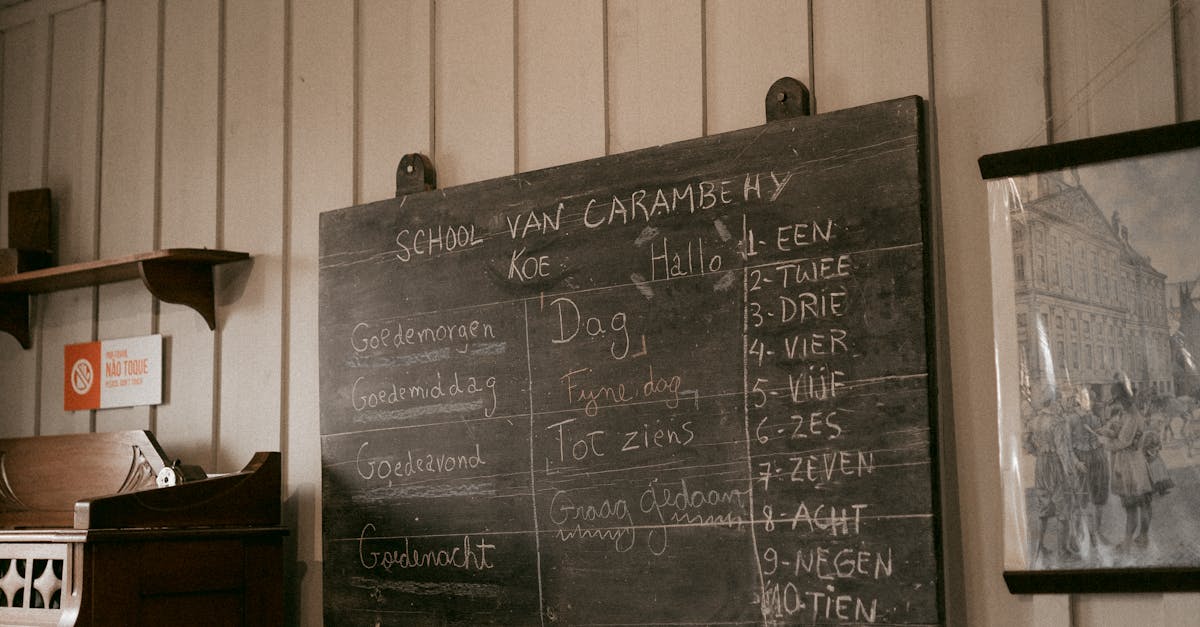 SCHOOL VAN CARAMBEHY
KOE
Hallo
Goedemorgen
Goedemiddag
Goedeavond
Goedenacht
Dag
Fijne dag
Tot ziens
Graag gedaan
1- EEN
2- TWEE
3- DRIE
4- VIER
5- VIJF
6- ZES
7- ZEVEN
8- ACHT
9- NEGEN
10 TIEN
POR FAVOR
NÃO TOQUE
PLEASE, DON'T TOUCH